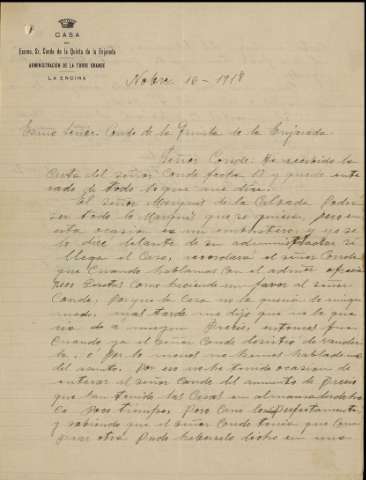 CASA
DEL
Excmo. Sr. Conde de la Quinta de la Enjarada
ADMINISTRACIÓN DE LA TORRE GRANDE
LA ENCINA
Nobre 16 - 1918
Exmo Señor Conde de la Quinta de la Enjarada
Señor Conde: He recibido la
Carta del señor Conde fecha 12 y quedo ente
rado de todo lo que me dice.
El señor Marques de la Calzada podra
ser todo lo Marques que se quiera, pero en
esta ocasion es un embustero, y yo se
lo dire delante de su administrador si
llega el Caso, recordara el señor Conde
que Cuando hablamos con el admor
Como haciendo un favor al señor
Conde, porque la Casa no la queria de ningun
modo, mas tarde me dijo que no la que
ria de a ningun Precio, entonces fue
Cuando ya el señor Conde desistio de
la, o por lo menos no hemos hablado
del asunto. Por eso no he tenido ocasion de
enterar al señor Conde del aumento de Precio
que han tenido las Casas en Almansa desde ha
Ce poco tiempo, Pero Como perfectamente
y sabiendo que el señor Conde tenia que Com
prar otra Pudo haberselo dicho en una